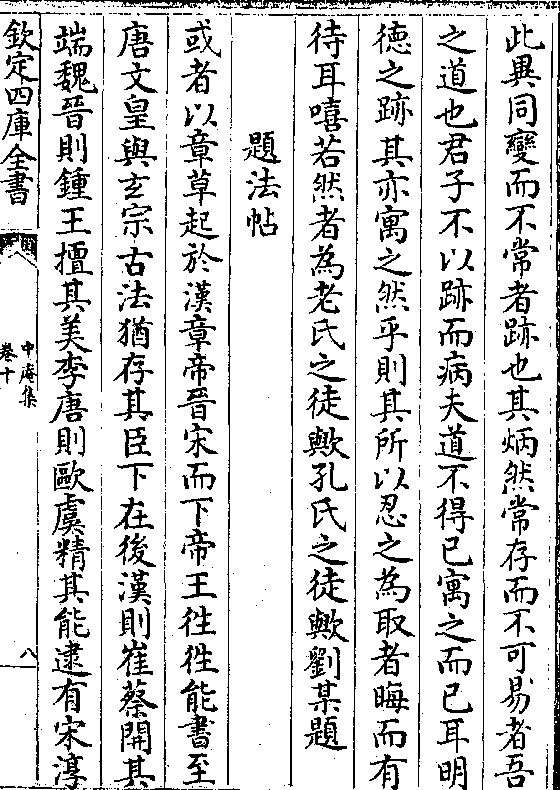 此異同變而不常者跡也其炳然常存而不可易者吾
之道也君子不以跡而病夫道不得已寓之而已耳明
徳之跡其亦寓之然乎則其所以忍之為取者晦而有
待耳嘻若然者為老氏之徒歟孔氏之徒歟劉某題
題法帖
或者以章草起於漢章帝晉宋而下帝王徃徃能書至
唐文皇與玄宗古法猶存其臣下在後漢則崔蔡開其
端魏晉則鍾王擅其美李唐則歐虞精其能逮有宋淳
欽定四庫全書
中庵集
卷十
八